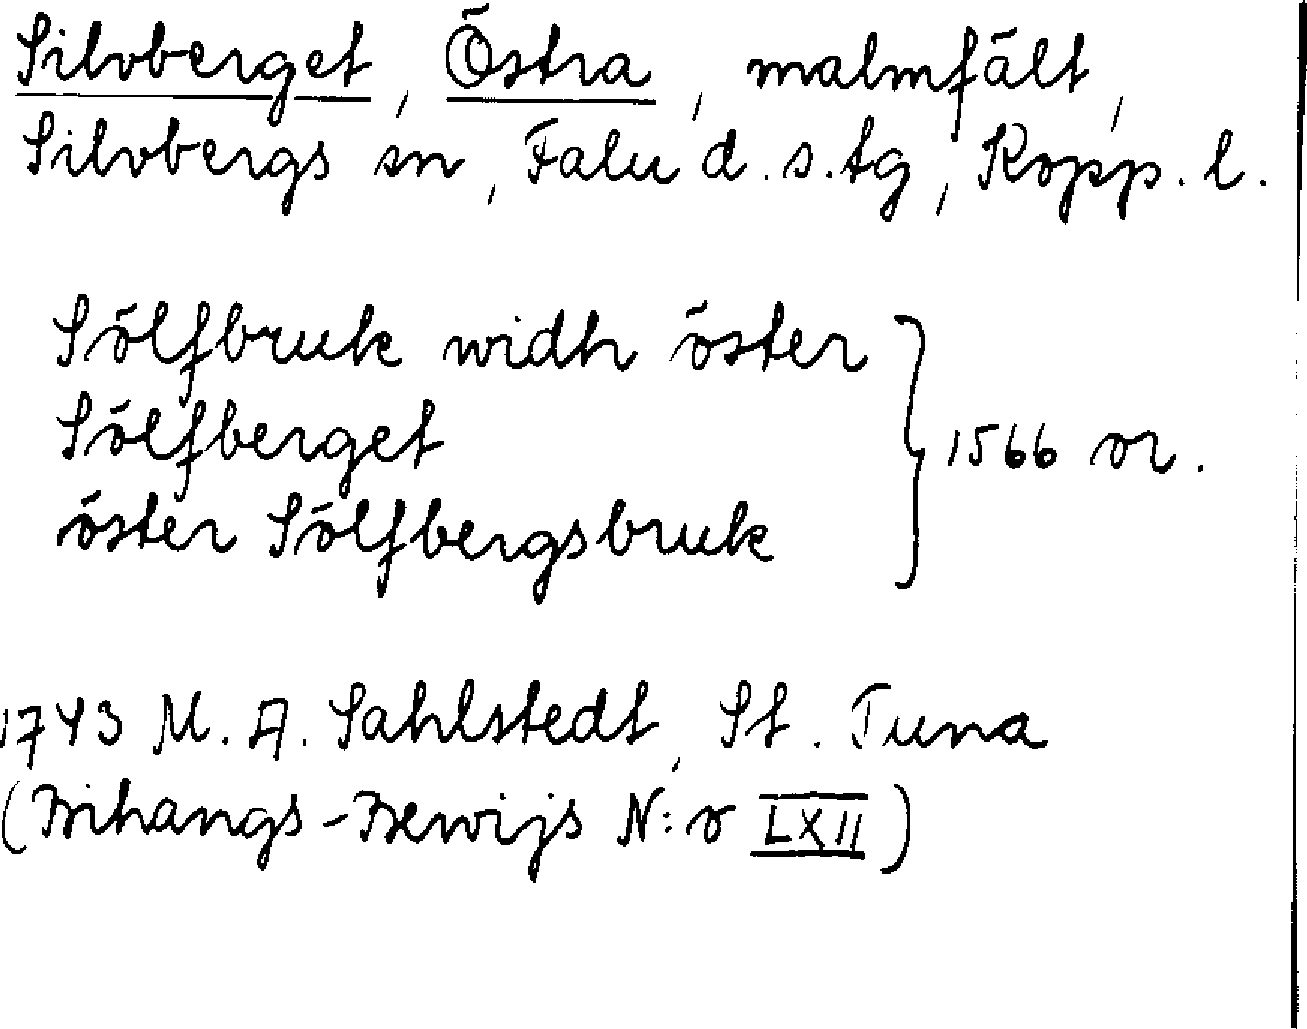 Silvberget, Östra, malmfält,
Silvbergs sn, Falu d.s.tg, Kopp. l.
Sölfbruk widh öster
Sölfberget
öster Sölfbergsbruk
1566 or.
1743 M. A. Sahlstedt, St. Tuna
(Bihangs-Bewijs N:o LXII)